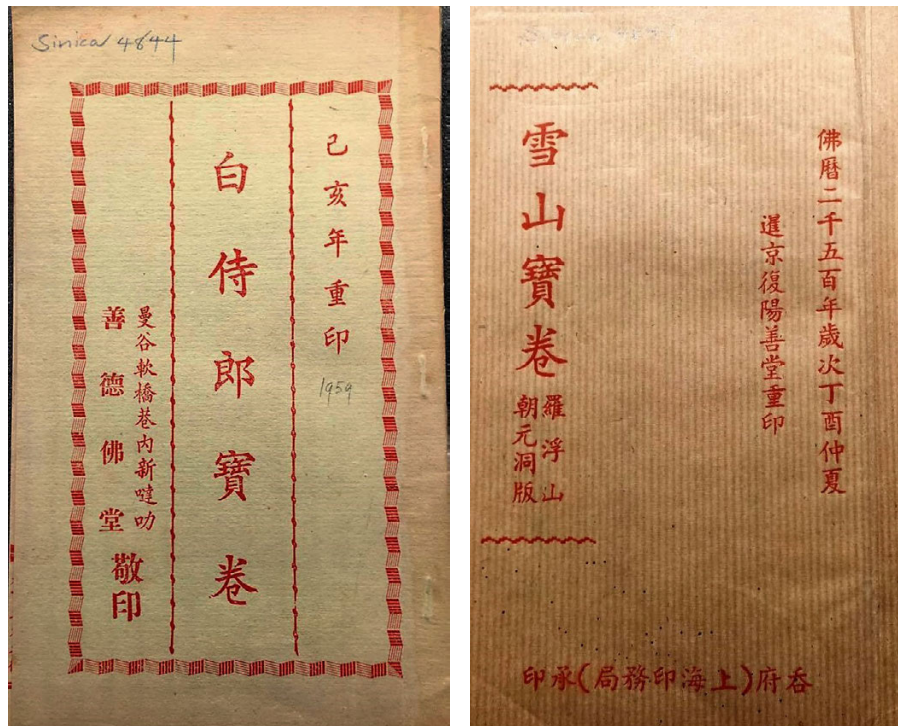 Sinica 4844
己亥年重印
1959
白侍郎寶卷
曼谷軟橋巷内新噠叻
善德佛堂
敬印
佛曆二千五百年歲次丁酉仲夏
暹京復陽善堂重印
雪山寶卷
羅浮山
朝元洞版
印承(局務印海上)府吞